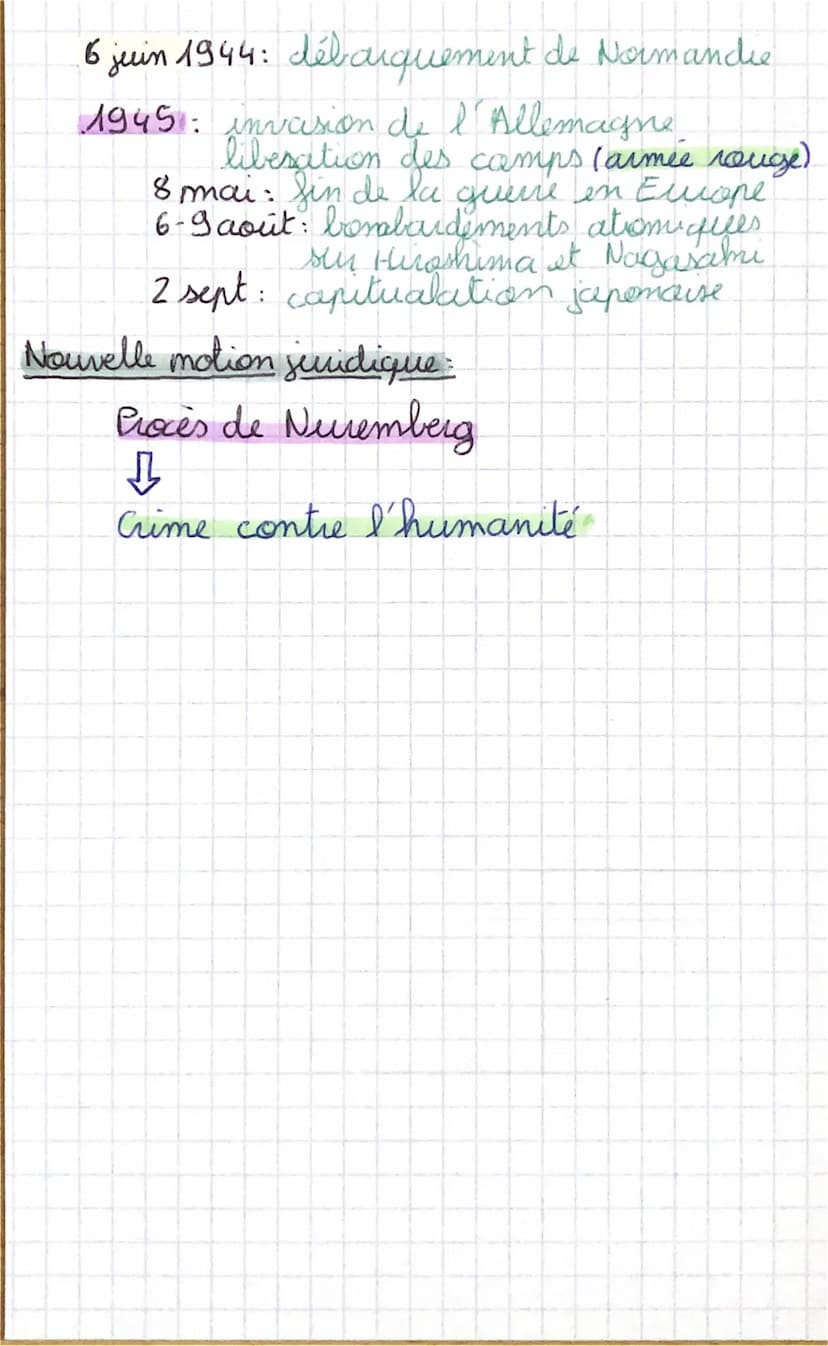 6 juin 1944: débarquement de Normandie
1945: invasion de l'Allemagne
libération des camps (armée rouge)
8 mai: fin de la guerre en Europe
6-9 août: bombardements atomiques
sur Hiroshima et Nagasaki
2 sept: capitualation japonaise
Nouvelle notion juridique:
Procès de Nuremberg
⇓
Crime contre l'humanité